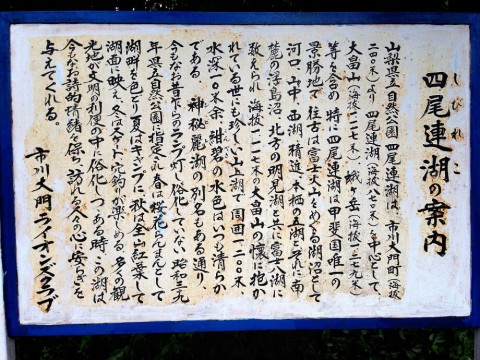 四尾連湖の案内
しびれこ
山梨県立自然公園四尾連湖は、市川大門町(海抜
二四〇米)より四尾連湖(海抜八七〇米)を中心として、
大畠山(海抜一一一七米)蛾ヶ岳(海抜一二七九米)
等を含め特に四尾連湖は、甲斐国唯一の
景勝地で往古は富士火山をめぐる湖沼として
河口、山中、西湖、精進、本栖の五湖と、それに南
麓の浮島沼、北方の明見湖と共に富士八湖に
数えられ、海抜一一一七米の大畠山の懐に抱か
れている世にも珍しい山上湖で周囲一二〇〇米、
水深一〇米余、紺碧の水色はいつも清らか
である。神秘麗湖の別名もある通り
今もなお昔ながらのランプ灯し俗化していない、昭和三九
年県立自然公園に指定され春は桜花らんまんとして
湖畔を色どり夏はキャンプに、秋は全山紅葉して
湖面に映え、冬はスケート、穴釣が楽しめる。多くの観
光地が文明の利便の中に俗化しつつある時、この湖は
今もなお詩的情緒を保ち、訪れる人々の心に安らぎを
与えてくれる
市川大門ライオンズクラブ